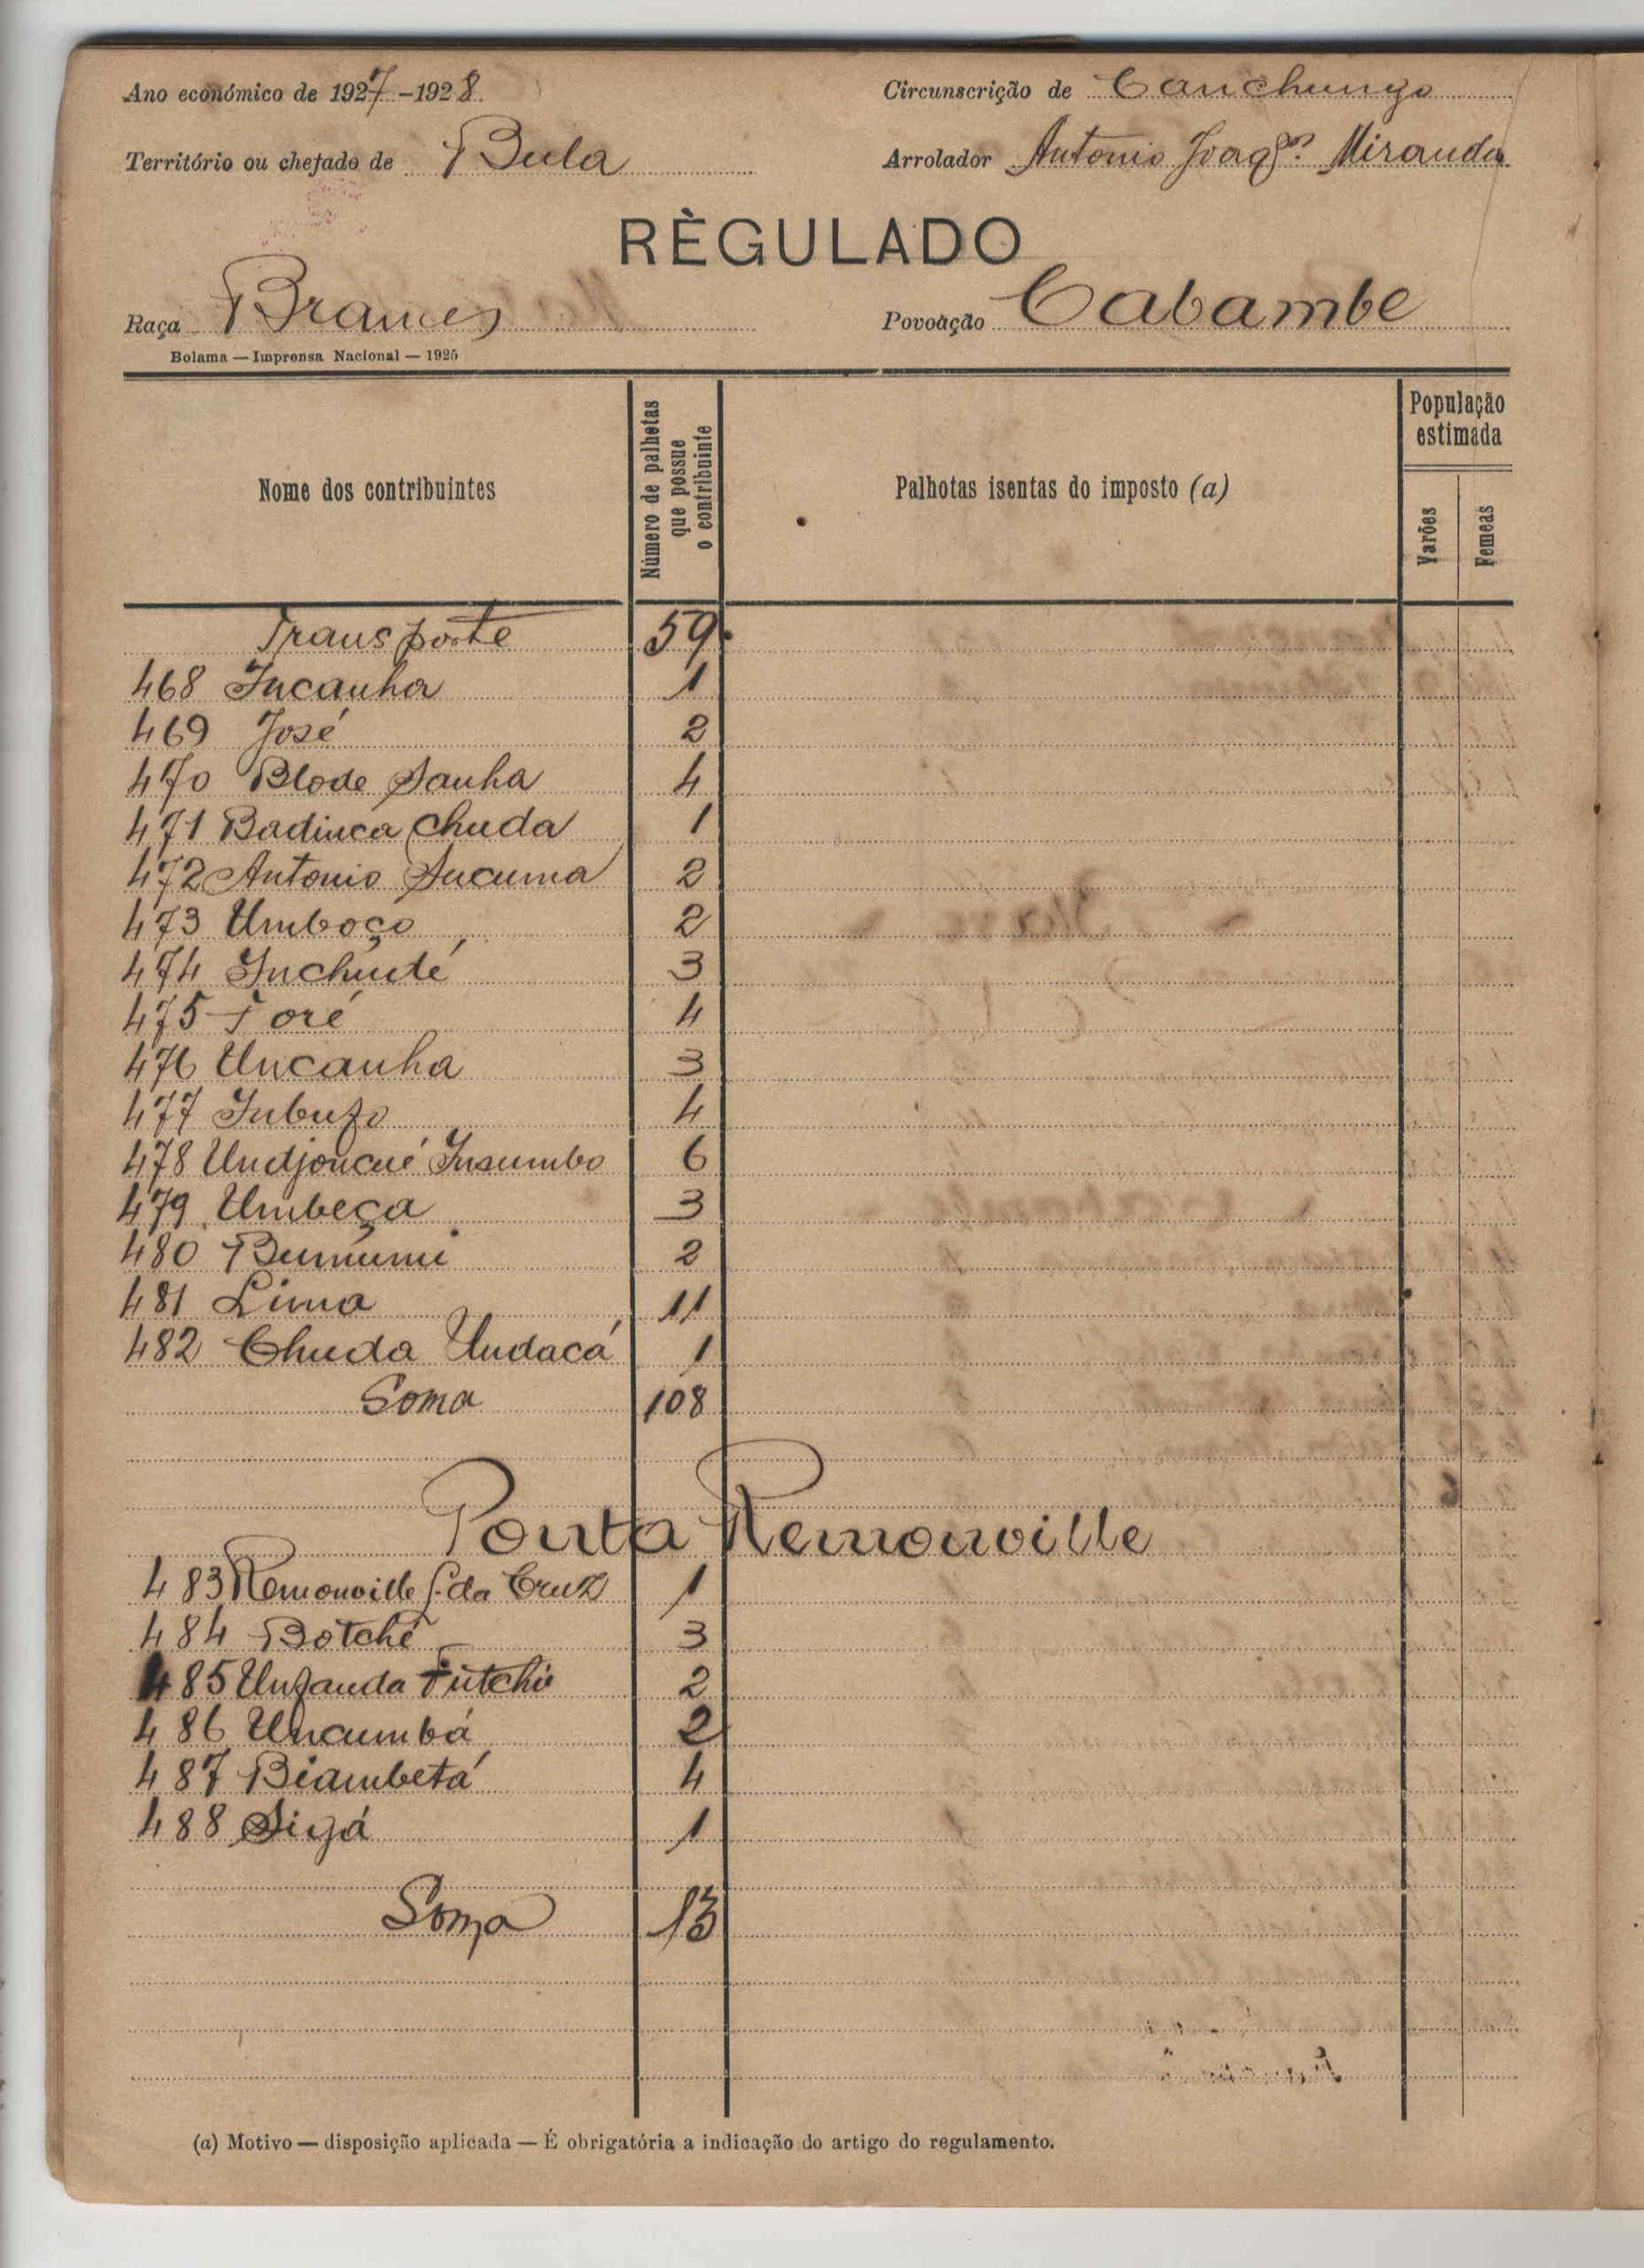 Ano económico de 1927-1928 Circunscrição de Canchungo
Território ou chefado de Bula Arrolador Antonio Joaqᵐ. Miranda
RÈGULADO
Raça Brames Povoação Cabambe
Bolama — Imprensa Nacional — 1925
Nome dos contribuintes Número de palhotas que possue o contribuinte Palhotas isentas do imposto (a) População estimada Varões Femeas
Transporte 59
468 Incanha 1
469 José 2
470 Blode Sanha 4
471 Badinca Chuda 1
472 Antonio Sucuma 2
473 Umboço 2
474 Inchudé 3
475 Foré 4
476 Uncanha 3
477 Inbuzo 4
478 Undjoucué Insumbo 6
479 Umbeça 3
480 Bumumi 2
481 Lima 11
482 Chuda Undacá 1
Soma 108
Ponta Remonville
483 Remonville S. da Cruz 1
484 Botché 3
485 Unzanda Futchi 2
486 Uncumbá 2
487 Biambetá 4
488 Sigá 1
Soma 13
(a) Motivo — disposição aplicada — É obrigatória a indicação do artigo do regulamento.